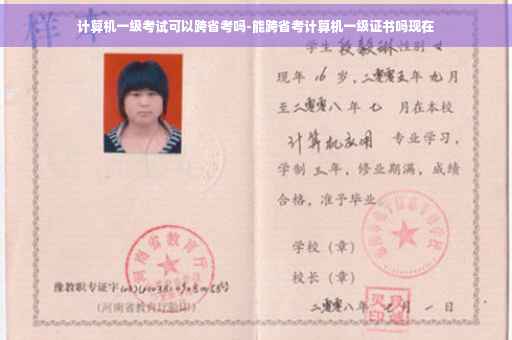 计算机一级考试可以跨省考吗-能跨省考计算机一级证书吗现在
样本
学生 段毅琳 性别 女
现年 16 岁,二零零五年 九月
至二零零八年 七 月在本校
计算机应用 专业学习,
学制 三 年,修业期满,成绩
合格,准予毕业
学校(章)
校长(章)
二零零八年 七 月 一 日
河南省教育厅
豫教职专证字
(河南省教育厅验印)